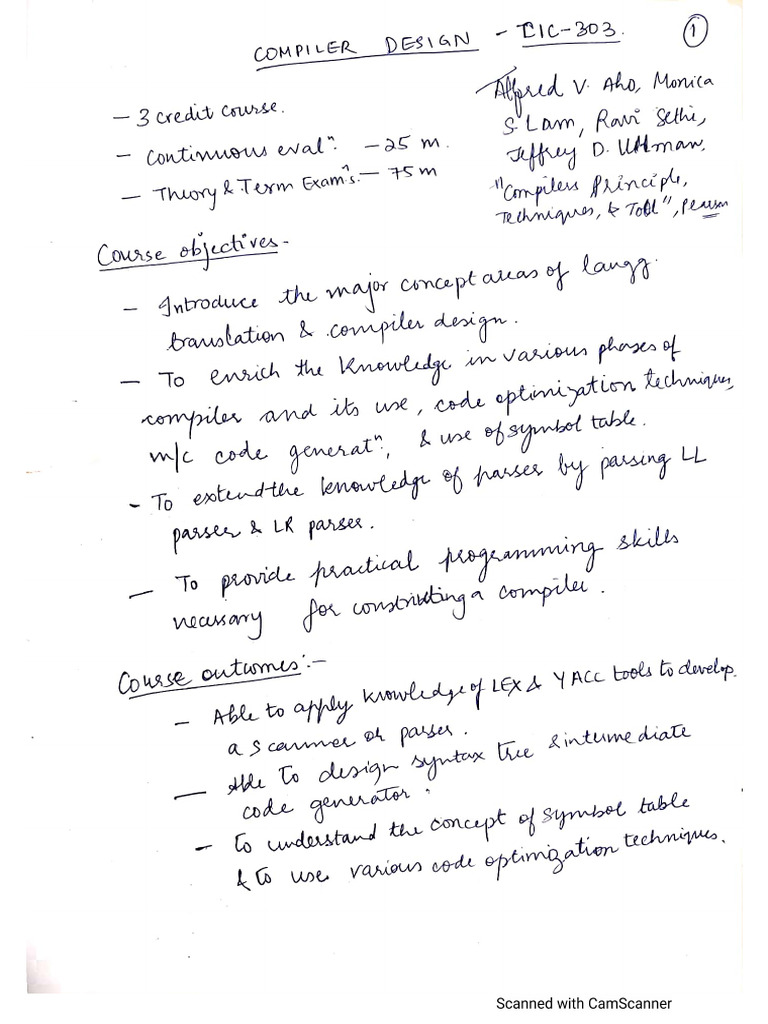 COMPILER DESIGN - CIC-303. 1
- 3 credit course.
- Continuous evalⁿ. - 25 m.
- Theory & Term Examⁿs. - 75 m
Alfred V. Aho, Monica
S. Lam, Ravi Sethi,
Jeffrey D. Ullman,
"Compilers Principle,
Techniques, & Tool", Pearson
Course objectives -
- Introduce the major concept areas of langg.
translation & compiler design.
- To enrich the knowledge in various phases of
compiler and its use, code optimization techniques,
m/c code generatⁿ, & use of symbol table.
- To extend the knowledge of parser by parsing LL
parser & LR parser.
- To provide practical programming skills
necessary for constructing a compiler.
Course outcomes:-
- Able to apply knowledge of LEX & YACC tools to develop
a scanner or parser.
- Able to design syntax tree & intermediate
code generator.
- to understand the concept of symbol table
& to use various code optimization techniques.
Scanned with CamScanner